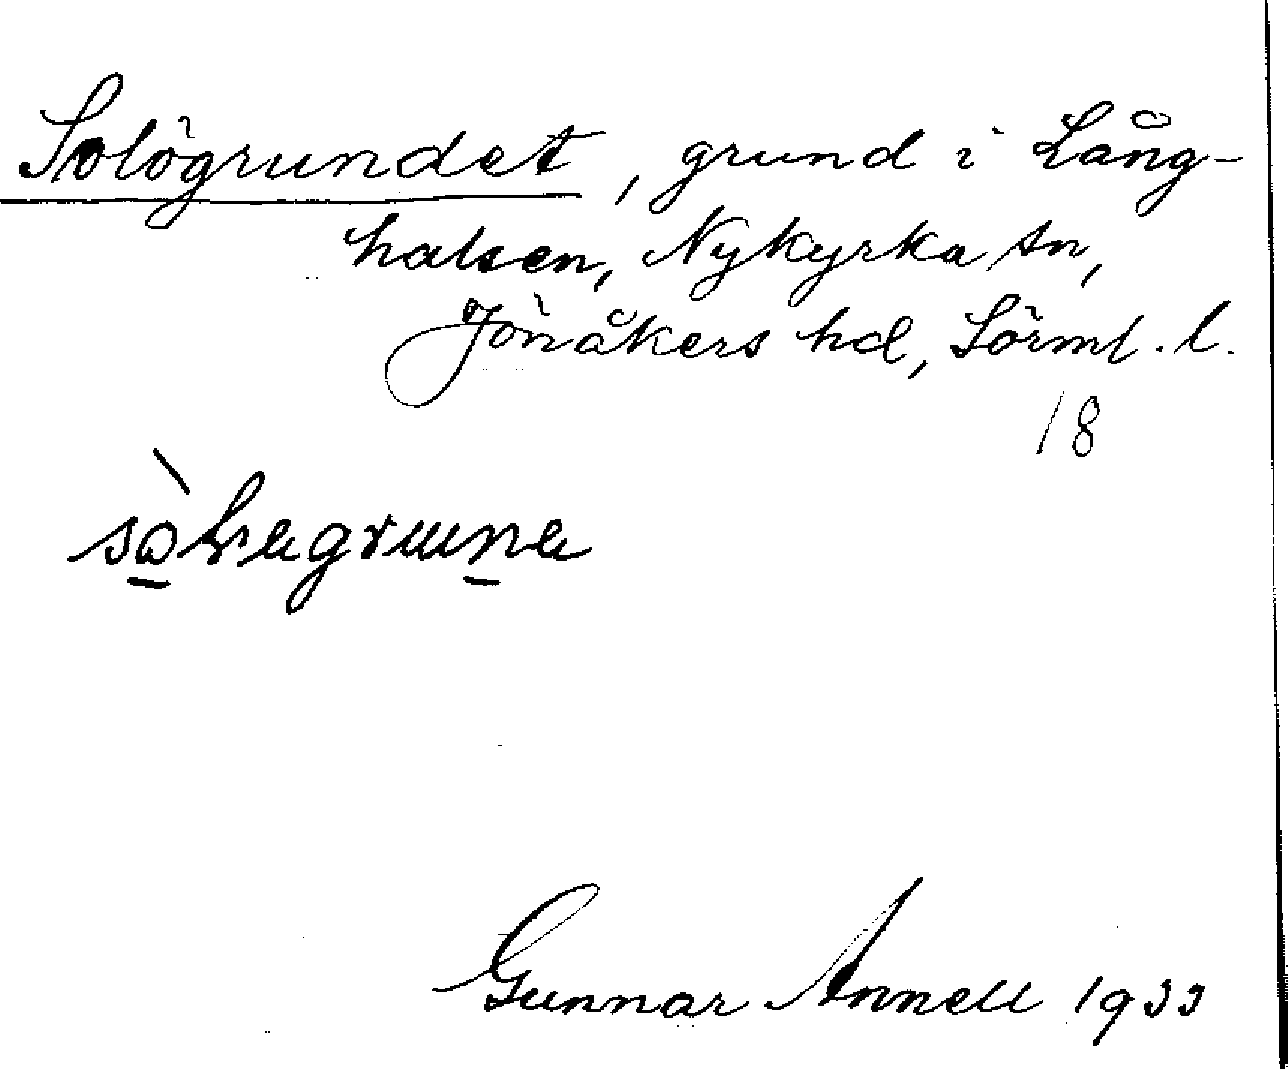 Solögrundet, grund i Lång-
halsen, Nykyrka sn,
Jönåkers hd, Sörml. l.
18
Gunnar Annell 1933